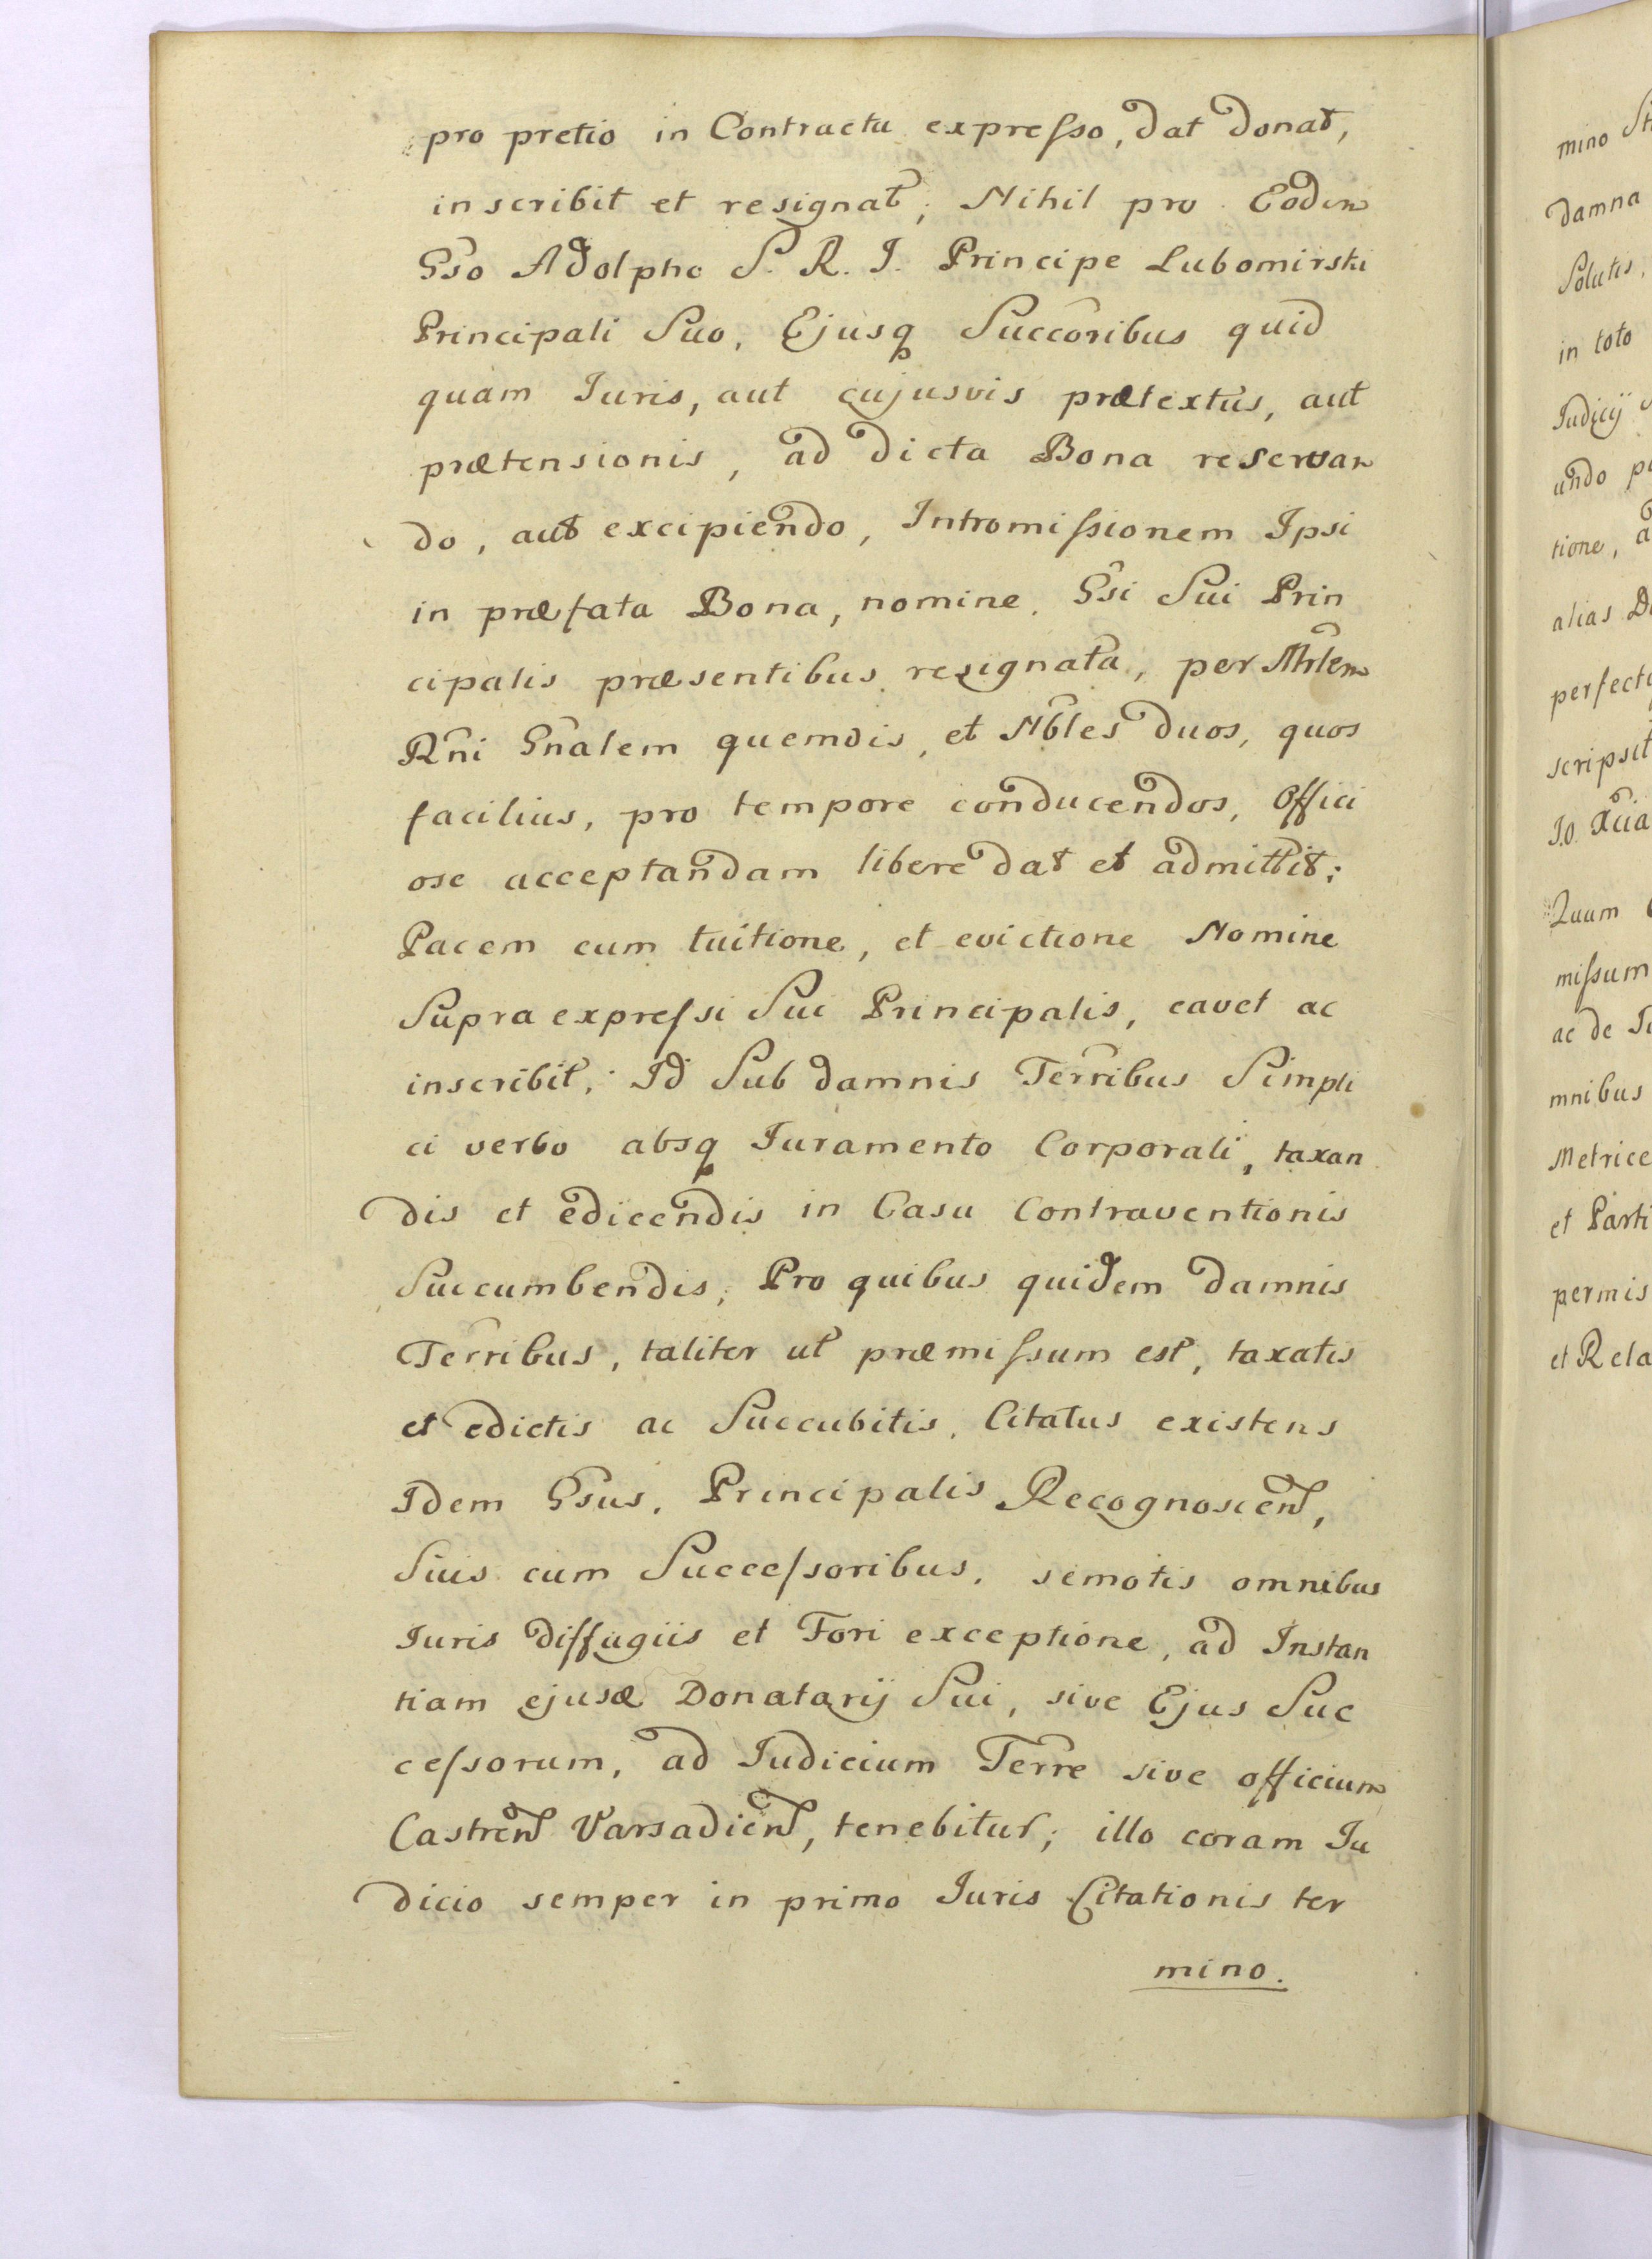 pro pretio in Contractu expresso, dat donat,
inscribit et resignat; Nihil pro Eodem
Gso Adolpho S. R. I. Principe Lubomirski
Principali Suo, Ejusq Succoribus quid
quam Iuris, aut cujusvis prætextus, aut
prætensionis, ad dicta Bona reservan
do, aut excipiendo, Intromissionem Ipsi
in præfata Bona, nomine Gsi Sui Prin
cipalis præsentibus resignata, per Mrlem
Rni Gnalem quemvis, et Nbles duos, quos
facilius, pro tempore conducendos, Offici
ose acceptandam libere dat et admittit;
Pacem cum tuitione, et evictione Nomine
Supra expressi Sui Principalis, cavet ac
inscribit; Id Sub damnis Terribus Simpli
ci verbo absq Iuramento Corporali, taxan
dis et edicendis in Casu Contraventionis
Succumbendis; Pro quibus quidem damnis
Terribus, taliter ut præmissum est, taxatis
et edictis ac Succubitis, Citatus existens
Idem Gsus, Principalis Recognoscen,
Suis cum Successoribus, semotis omnibus
Iuris diffugiis et Fori exceptione, ad Instan
tiam ejusd Donatarij Sui, sive Ejus Suc
cessorum, ad Iudicium Terre sive officium
Castren Varsadien, tenebitur; illo coram Iu
dicio semper in primo Iuris Citationis ter
mino.
mino
damna
Solutis,
in toto
Iudicij
undo
tione,
alias
perfect
scripsit
Quam
missum
ac de
mnibus
Metrice
et Parti
permis
et Rela